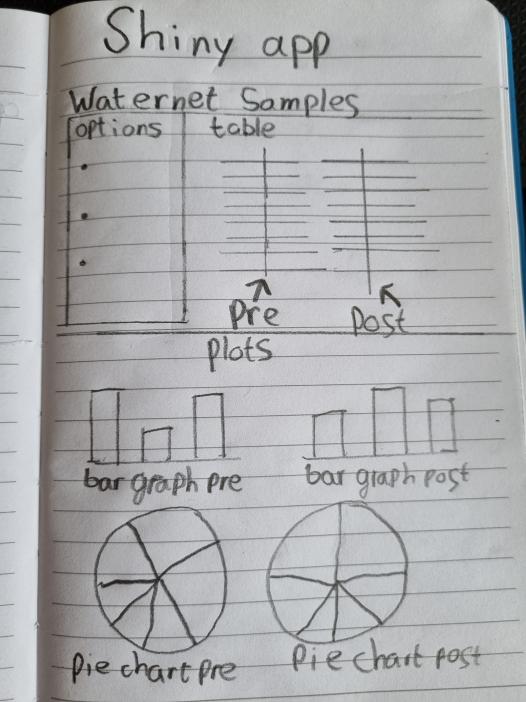 Shiny app
Waternet Samples
options table
Pre Post
plots
bar graph pre bar graph post
Pie chart pre Pie chart post